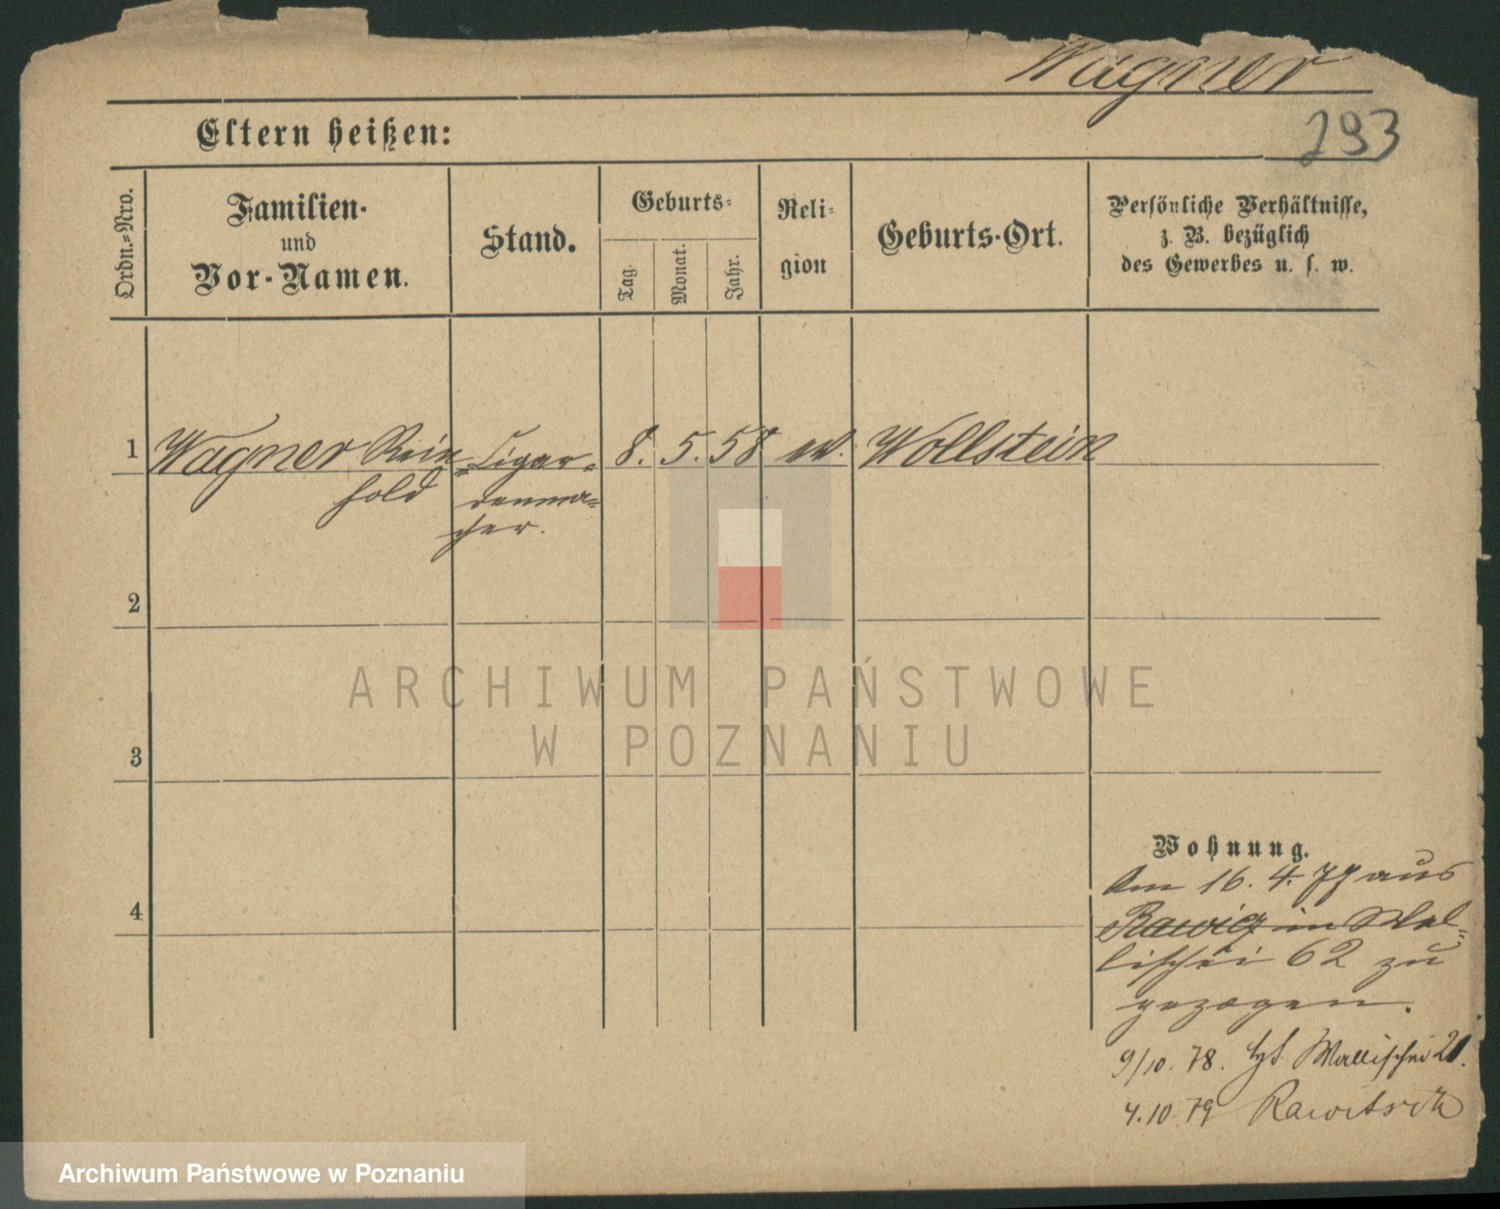 Wagner
293
Eltern heißen:
Ordn.-Nro.
Familien-
und
Vor-Namen.
Stand.
Geburts-
Tag.
Monat.
Jahr.
Reli-
gion
Geburts-Ort.
Persönliche Verhältnisse,
z. B. bezüglich
des Gewerbes u. s. w.
1 Wagner Rein= Cigar= 8. 5. 58 ev. Wollstein
hold
cher.
2
ARCHIWUM PAŃSTWOWE
W POZNANIU
3
Wohnung.
Am 16. 4. 77 aus
4
Rawicz im Wal=
lischei 62 zu
gezogen.
9/10. 78. Wallischei 21.
4.10 79 Rawitsch
Archiwum Państwowe w Poznaniu